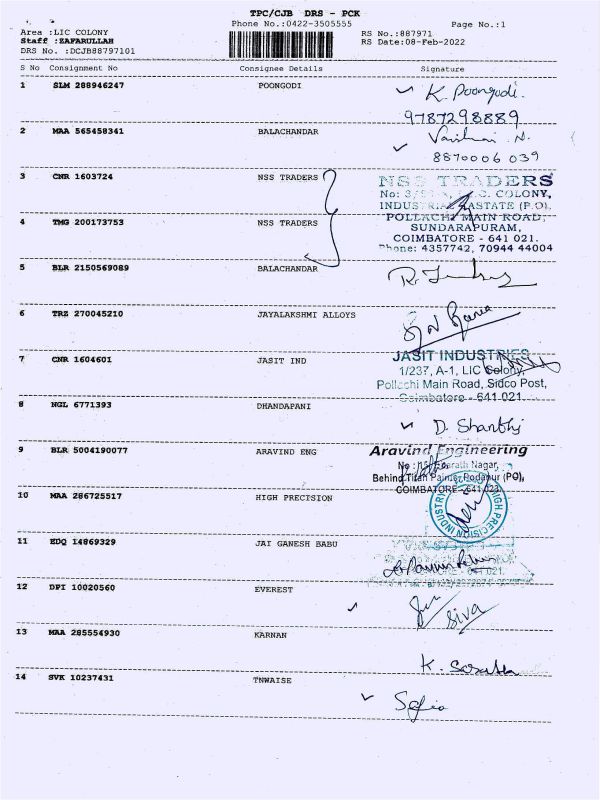 TPC/CJB DRS - PCK
Phone No.:0422-3505555
Page No.:1
Area :LIC COLONY
Staff :ZAFARULLAH
DRS No. :DCJB88797101
RS No.:887971
RS Date:08-Feb-2022
S No Consignment No Consignee Details Signature
1 SLM 288946247 POONGODI K. Poongodi.
9787298889
2 MAA 565458341 BALACHANDAR
8870006 039
3 CNR 1603724 NSS TRADERS NSS TRADERS
COLONY,
INDUSTRIAL ESTATE (P.O).
4 TMG 200173753 NSS TRADERS POLLACHI MAIN ROAD,
SUNDARAPURAM,
COIMBATORE - 641 021.
Phone: 4357742, 70944 44004
5 BLR 2150569089 BALACHANDAR
6 TRZ 270045210 JAYALAKSHMI ALLOYS
7 CNR 1604601 JASIT IND JASIT INDUSTRIES
1/237, A-1, LIC Colony,
Pollachi Main Road, Sidco Post,
Coimbatore - 641 021.
8 NGL 6771393 DHANDAPANI D. Shanthi
9 BLR 5004190077 ARAVIND ENG Aravind Engineering
Nagar,
Behind Titan Paints, Podanur (PO),
COIMBATORE - 641 023
10 MAA 286725517 HIGH PRECISION HIGH PRECISION INDUSTRIES
11 EDQ 14869329 JAI GANESH BABU
12 DPI 10020560 EVEREST
Siva
13 MAA 285554930 KARNAN
14 SVK 10237431 TNWAISE